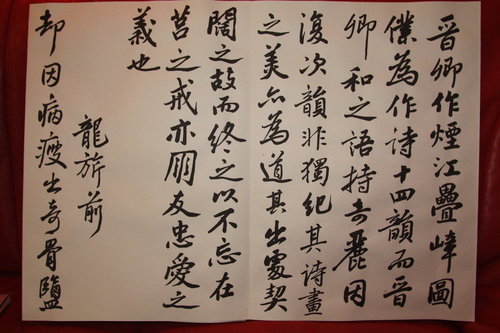 晉卿作煙江疊嶂圖
僕為作詩十四韻而晉
卿和之語特奇麗因
復次韻非獨紀其詩畫
之美亦為道其出處契
闊之故而終之以不忘在
莒之戒亦朋友忠愛之
義也
龍旂前
却因病瘦出奇骨鹽